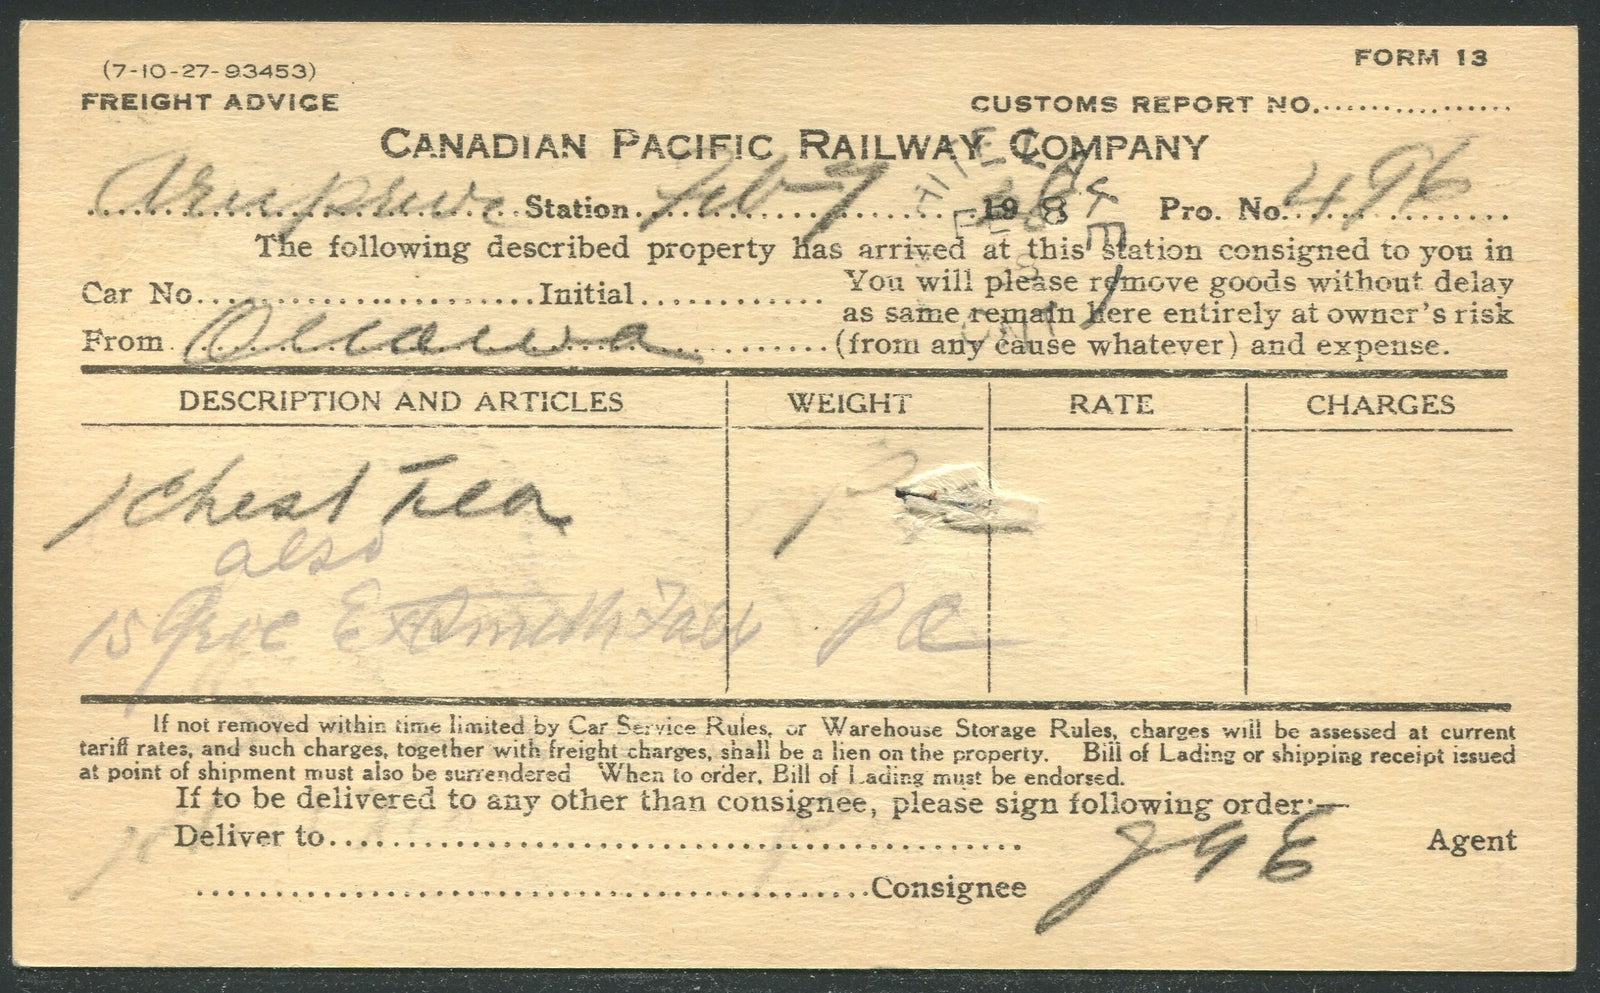 (7-10-27-93453)
FORM 13
FREIGHT ADVICE
CUSTOMS REPORT NO.
CANADIAN PACIFIC RAILWAY COMPANY
Arnprior Station Feb 7 1928 Pro. No. 496
The following described property has arrived at this station consigned to you in
Car No. Initial
You will please remove goods without delay
as same remain here entirely at owner's risk
From Ottawa
(from any cause whatever) and expense.
DESCRIPTION AND ARTICLES WEIGHT RATE CHARGES
1 Chest Tea
also
15
If not removed within time limited by Car Service Rules, or Warehouse Storage Rules, charges will be assessed at current
tariff rates, and such charges, together with freight charges, shall be a lien on the property. Bill of Lading or shipping receipt issued
at point of shipment must also be surrendered When to order, Bill of Lading must be endorsed.
If to be delivered to any other than consignee, please sign following order:—
Deliver to
Agent
Consignee